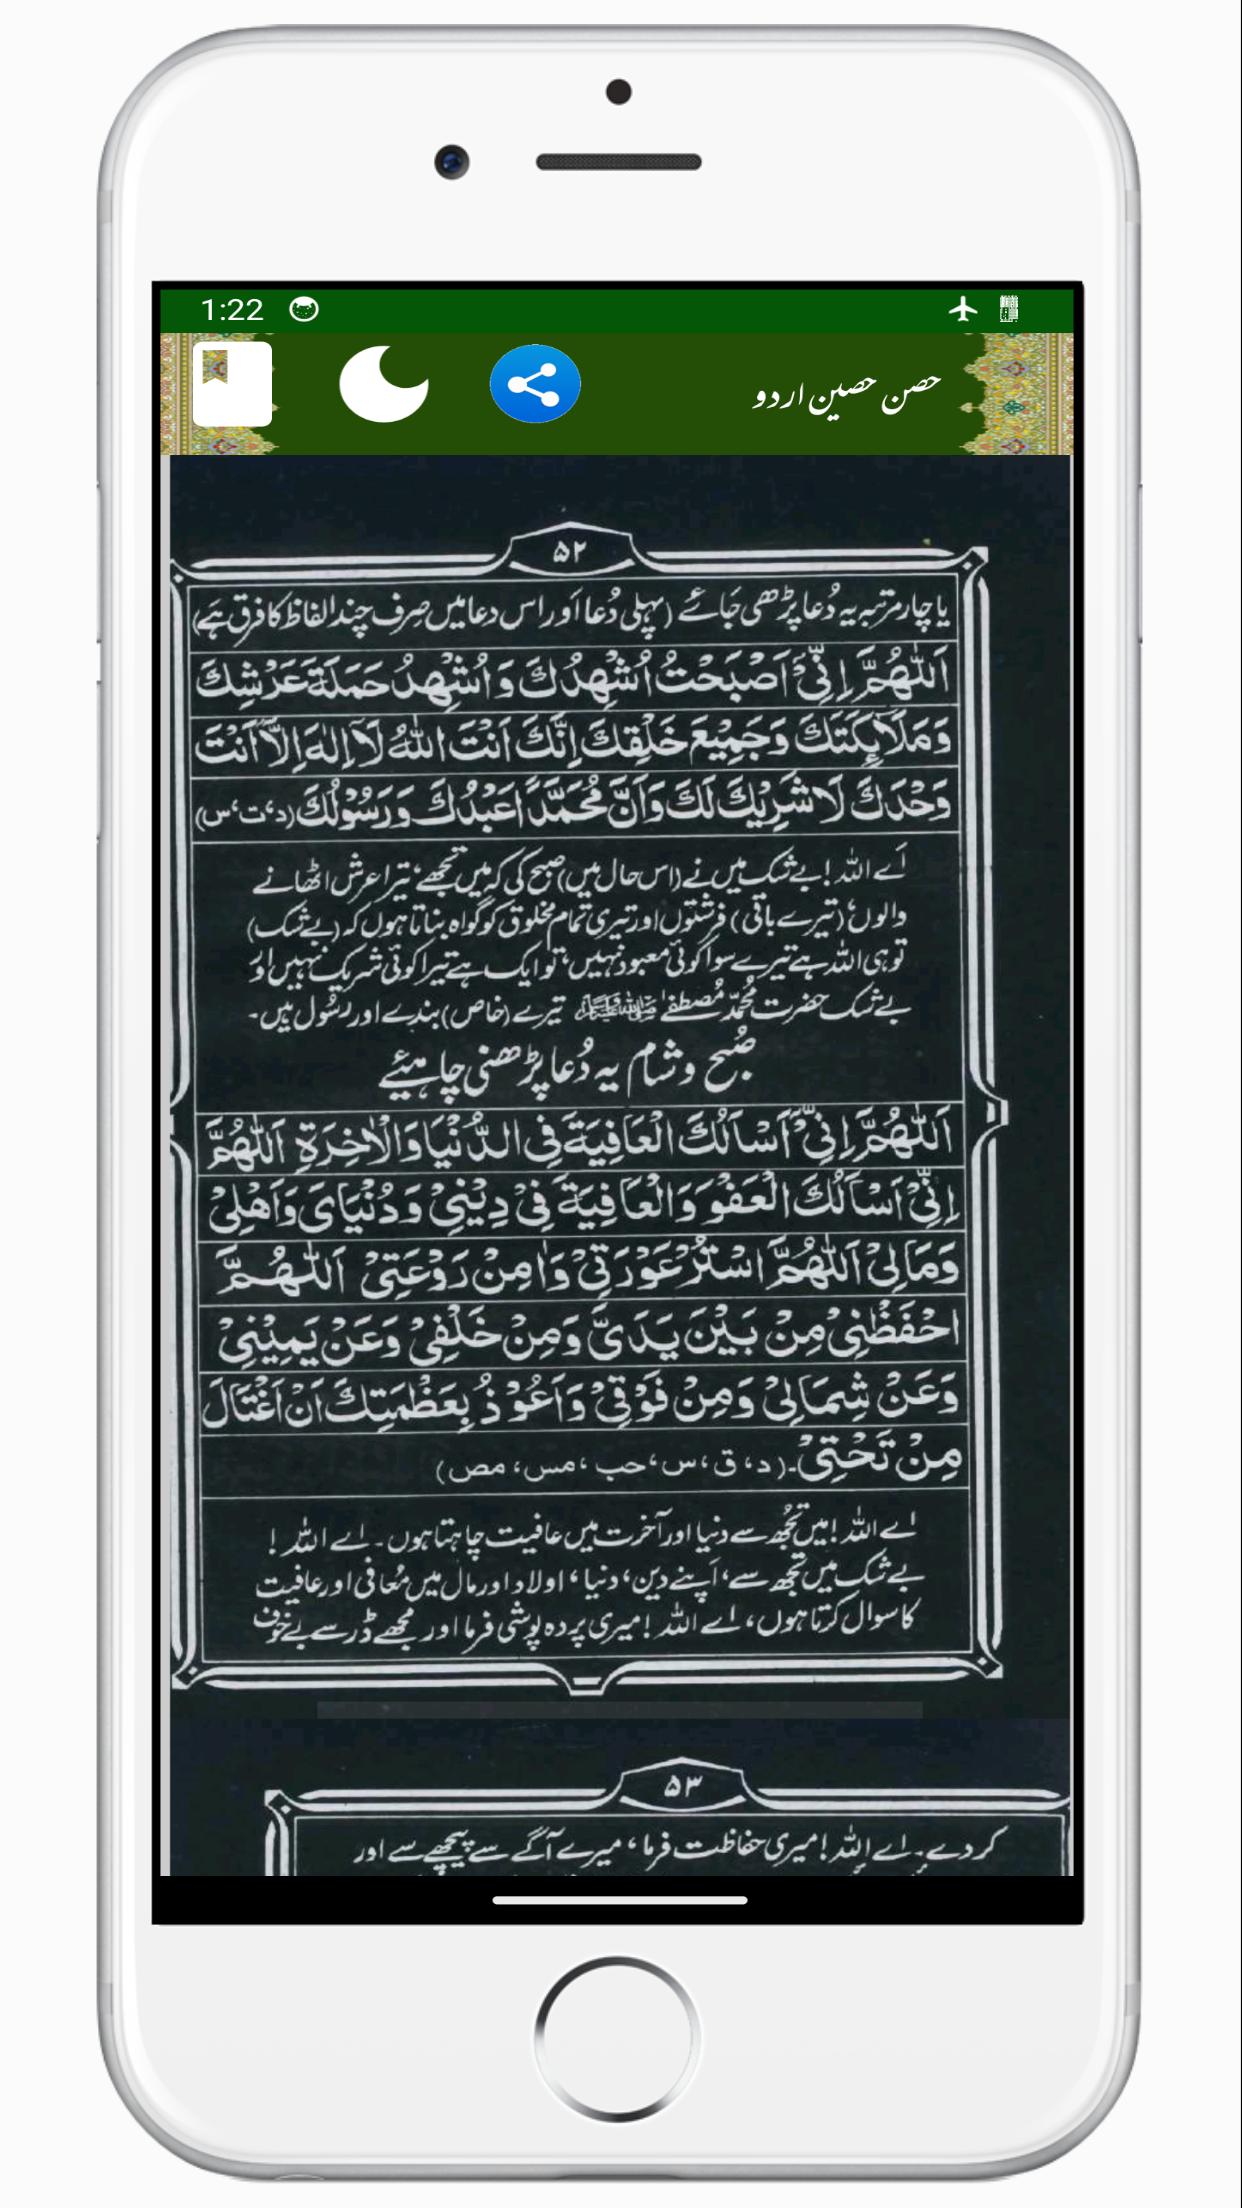 1:22
حصن حصین اردو
۵۲
یا چار مرتبہ یہ دُعا پڑھی جَائے (پہلی دُعا اَور اس دعا میں صِرف چند الفاظ کا فرق ہَے)
اَللّٰهُمَّ اِنِّيْٓ اَصْبَحْتُ اُشْهِدُكَ وَ اُشْهِدُ حَمَلَةَ عَرْشِكَ
وَمَلَآئِكَتَكَ وَجَمِيْعَ خَلْقِكَ اِنَّكَ اَنْتَ اللّٰهُ لَآ اِلٰهَ اِلَّآ اَنْتَ
وَحْدَكَ لَا شَرِيْكَ لَكَ وَاَنَّ مُحَمَّدًا عَبْدُكَ وَرَسُوْلُكَ (د،ت،س)
اَے اللہ! بے شک میں نے (اس حال میں) صبح کی کہ میں تجھے، تیرا عرش اٹھانے
والوں، (تیرے باقی) فرشتوں اور تیری تمام مخلوق کو گواہ بناتا ہوں کہ (بے شک)
تو ہی اللہ ہے تیرے سوا کوئی معبود نہیں، تو ایک ہے تیرا کوئی شریک نہیں اور
بے شک حضرت مُحمّد مُصطفےٰ ﷺ تیرے (خاص) بندے اور رسُول ہیں۔
صُبح و شام یہ دُعا پڑھنی چاہیئے
اَللّٰهُمَّ اِنِّيْٓ اَسْاَلُكَ الْعَافِيَةَ فِي الدُّنْيَا وَالْاٰخِرَةِ اَللّٰهُمَّ
اِنِّيْٓ اَسْاَلُكَ الْعَفْوَ وَالْعَافِيَةَ فِيْ دِيْنِيْ وَدُنْيَايَ وَاَهْلِيْ
وَمَالِيْ اَللّٰهُمَّ اسْتُرْ عَوْرَتِيْ وَاٰمِنْ رَوْعَتِيْ اَللّٰهُمَّ
احْفَظْنِيْ مِنْ بَيْنِ يَدَيَّ وَمِنْ خَلْفِيْ وَعَنْ يَمِيْنِيْ
وَعَنْ شِمَالِيْ وَمِنْ فَوْقِيْ وَاَعُوْذُ بِعَظْمَتِكَ اَنْ اُغْتَالَ
مِنْ تَحْتِيْ۔(د، ق،س،حب ،مس، مص)
اے اللہ! میں تجُھ سے دنیا اور آخرت میں عافیت چاہتا ہوں۔ اے اللہ!
بے شک میں تجھ سے، اَپنے دین، دنیا، اولاد اور مال میں مُعافی اور عافیت
کا سوال کرتا ہوں، اے اللہ! میری پردہ پوشی فرما اور مجھے ڈر سے بے خوف
۵۳
کر دے۔ اے اللہ! میری حفاظت فرما، میرے آگے سے پیچھے سے اور